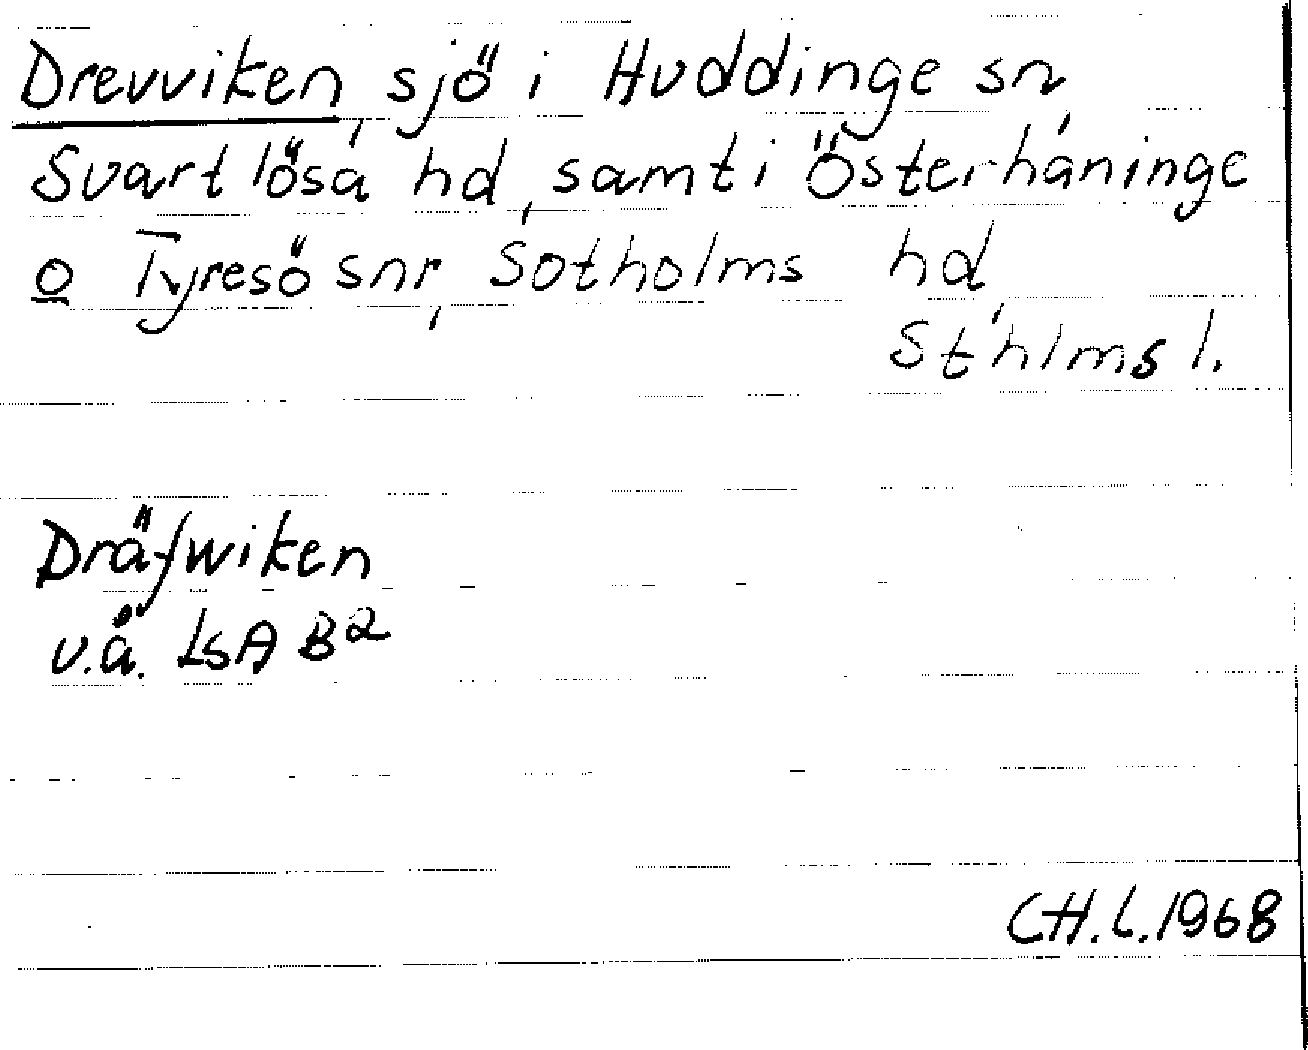 Drevviken, sjö i Huddinge sn,
Svartlösa hd, samt i Österhaninge
o Tyresö snr, Sotholms hd,
Sthlms l.
Dräfwiken
u.å. LSA B2
CH.L.1968